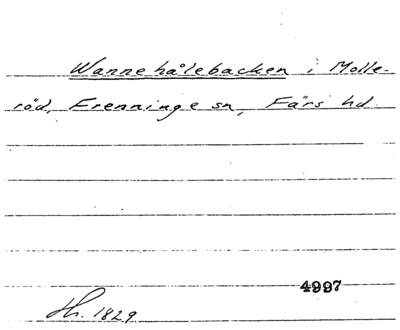 Wannehålebacken i Molle-
röd, Frenninge sn, Färs hd.
4997
Hh. 1829